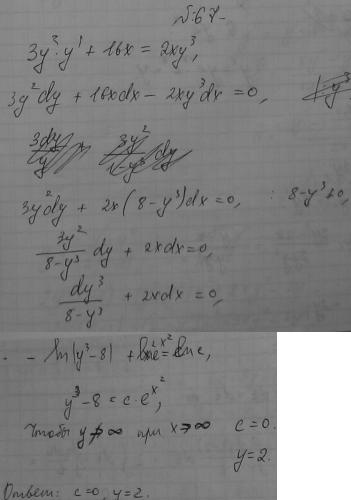 №67.
3y²·y' + 16x = 2xy³,
3y²dy + 16xdx - 2xy³dx = 0,
3y²dy + 2x(8-y³)dx = 0, : 8-y³≠0,
3y²/(8-y³) dy + 2xdx = 0,
dy³/(8-y³) + 2xdx = 0,
- ln|y³-8| + lne^x² = lnc,
y³-8 = c·e^x²,
Чтобы y↛∞ при x→∞ c=0.
y=2.
Ответ: c=0, y=2.